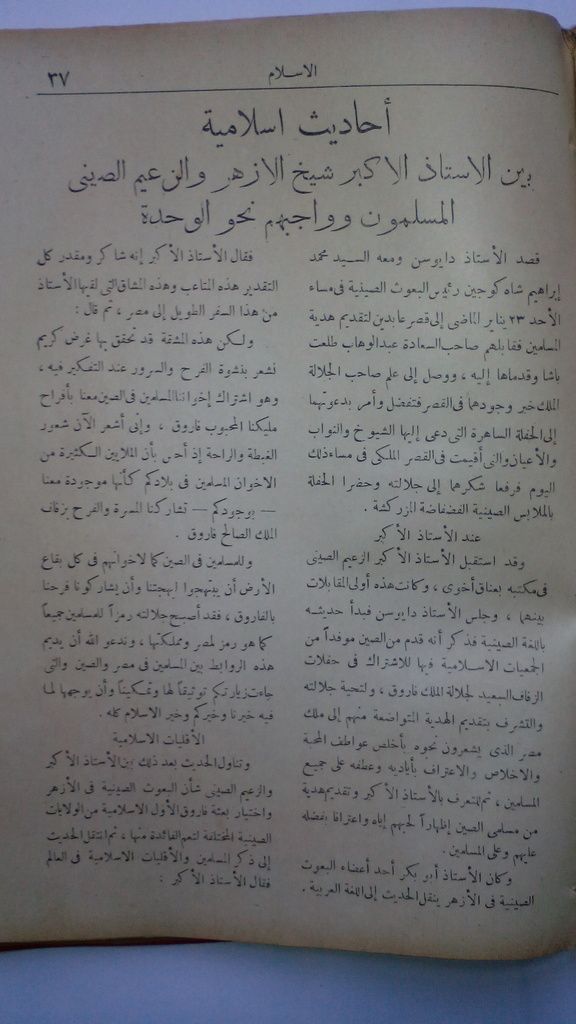 ٣٧
الاسلام
أحاديث اسلامية
بين الاستاذ الاكبر شيخ الازهر والزعيم الصيني
المسلمون وواجبهم نحو الوحدة
قصد الأستاذ دايوسن ومعه السيد محمد
إبراهيم شاه كوجين رئيس البعوث الصينية فى مساء
الأحد ٢٣ يناير الماضى إلى قصر عابدين لتقديم هدية
المسلمين فقابلهم صاحب السعادة عبد الوهاب طلعت
باشا وقدماها إليه ، ووصل إلى علم صاحب الجلالة
الملك خبر وجودهما فى القصر فتفضل وأمر بدعوتهما
إلى الحفلة الساهرة التى دعى إليها الشيوخ والنواب
والأعيان والتى أقيمت فى القصر الملكى فى مساء ذلك
اليوم فرفعا شكرهما إلى جلالته وحضرا الحفلة
بالملابس الصينية الفضفاضة المزركشة .
عند الأستاذ الأكبر
وقد استقبل الأستاذ الأكبر الزعيم الصينى
فى مكتبه بعناق أخوى ، وكانت هذه أولى المقابلات
بينهما ، وجلس الأستاذ دايوسن فبدأ حديثه
باللغة الصينية فذكر أنه قدم من الصين موفدا من
الجمعيات الاسلامية فيها للاشتراك فى حفلات
الزفاف السعيد لجلالة الملك فاروق ، ولتحية جلالته
والتشرف بتقديم الهدية المتواضعة منهم إلى ملك
مصر الذى يشعرون نحوه بأخلص عواطف المحبة
والاخلاص والاعتراف بأياديه وعطفه على جميع
المسلمين ، ثم للتعرف بالأستاذ الأكبر وتقديم هدية
من مسلمى الصين إظهاراً لحبهم إياه واعترافا بفضله
عليهم وعلى المسلمين .
وكان الأستاذ أبو بكر أحد أعضاء البعوث
الصينية فى الأزهر ينقل الحديث إلى اللغة العربية .
فقال الأستاذ الأكبر إنه شاكر ومقدر كل
التقدير هذه المتاعب وهذه المشاق التى لقيها الأستاذ
من هذا السفر الطويل إلى مصر ، ثم قال :
ولكن هذه المشقة قد تحقق بها غرض كريم
نشعر بنشوة الفرح والسرور عند التفكير فيه ،
وهو اشتراك إخواننا المسلمين فى الصين معنا بأفراح
مليكنا المحبوب فاروق ، وإنى أشعر الآن شعور
الغبطة والراحة إذ أحس بأن الملايين الكثيرة من
الاخوان المسلمين فى بلادكم كأنها موجودة معنا
— بوجودكم — تشاركنا المسرة والفرح بزفاف
الملك الصالح فاروق .
وللمسلمين فى الصين كما لاخوانهم فى كل بقاع
الأرض أن يبتهجوا ابهجتنا وأن يشاركونا فرحنا
بالفاروق ، فقد أصبح جلالته رمزاً للمسلمين جميعاً
كما هو رمز لمصر ومملكتها ، وندعو الله أن يديم
هذه الروابط بين المسلمين فى مصر والصين والتى
جاءت زيارتكم توثيقاً لها وتمكيناً وأن يوجهها لما
فيه خيرنا وخيركم وخير الاسلام كله .
الأقليات الاسلامية
وتناول الحديث بعد ذلك بين الأستاذ الأكبر
والزعيم الصينى شأن البعوث الصينية فى الأزهر
واختيار بعثة فاروق الأول الاسلامية من الولايات
الصينية المختلفة لتعم الفائدة منها ، ثم انتقل الحديث
إلى ذكر المسلمين والأقليات الاسلامية فى العالم
فقال الأستاذ الأكبر :